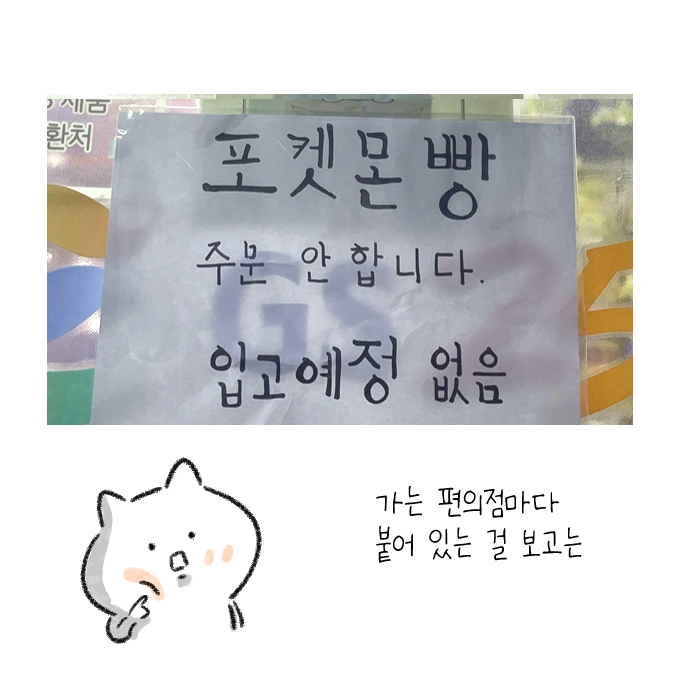 제품
환처
포켓몬빵
주문 안합니다.
GS25
입고예정 없음
가는 편의점마다
붙어 있는 걸 보고는